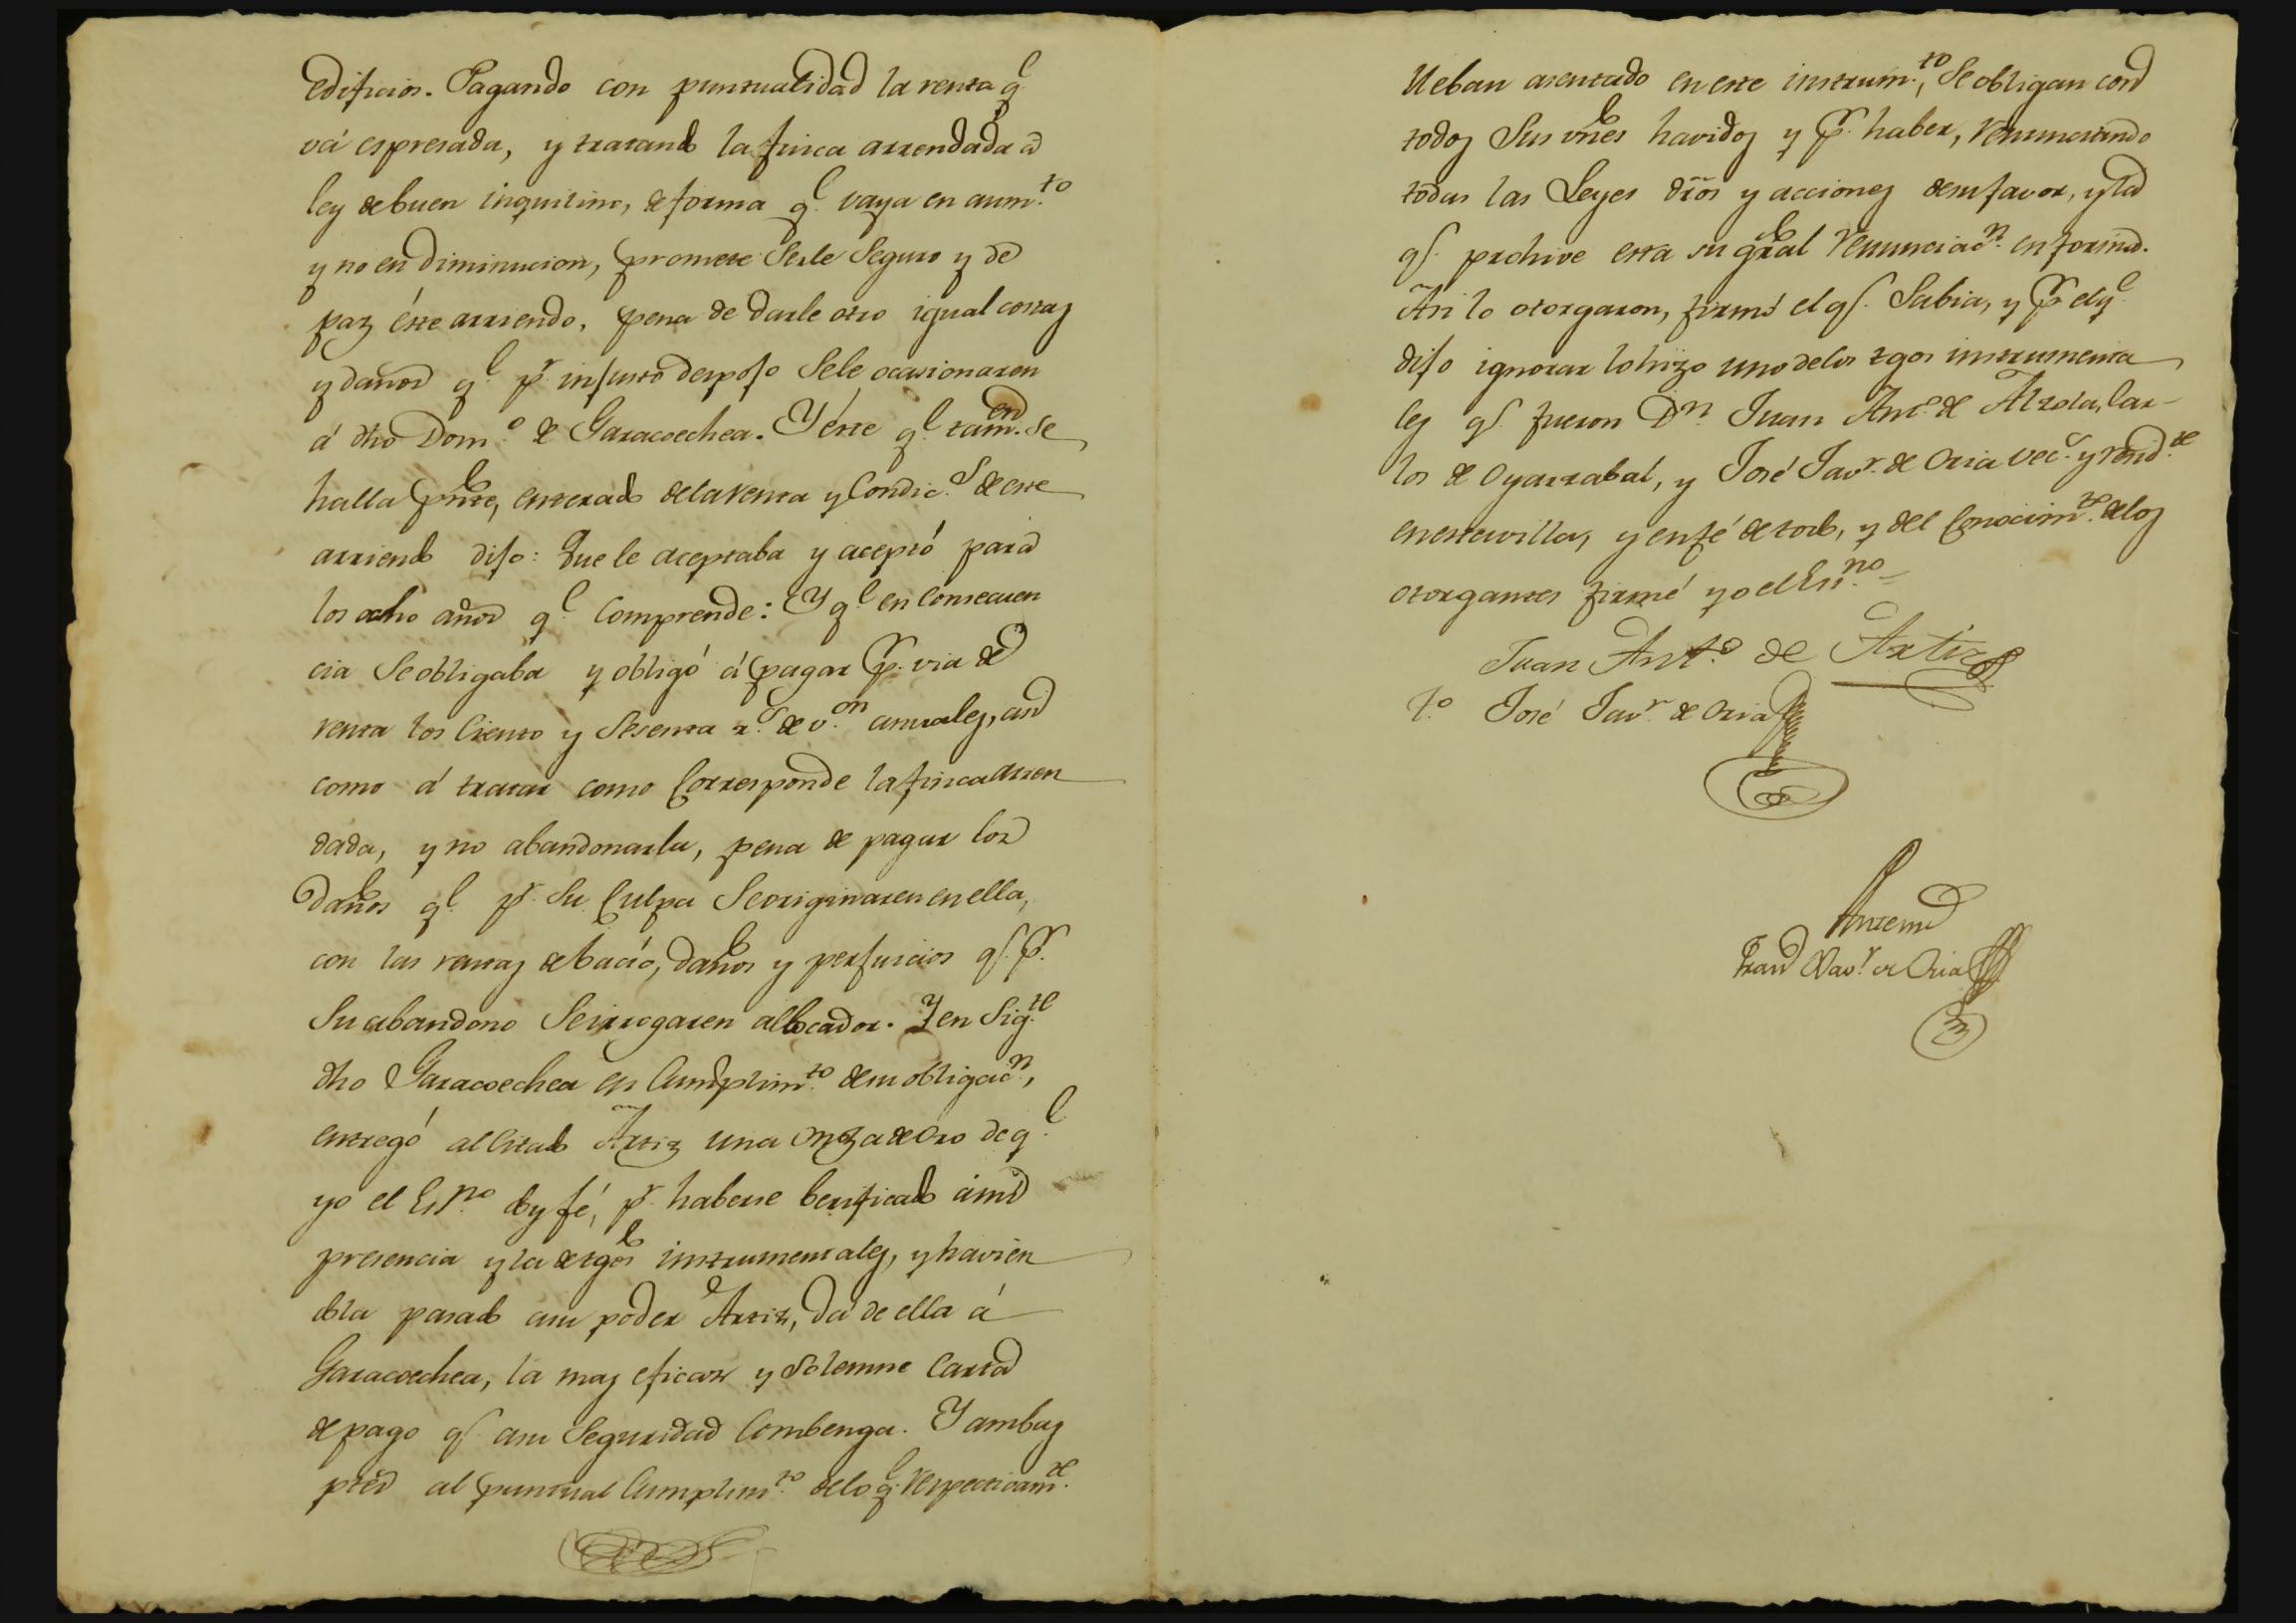 edificios. Pagando con puntualidad la renta q.e
vá espresada, y tratando la finca arrendada a
ley de buen inquilino, de forma q.e vaya en aum.to
y no en diminucion, promete serle seguro y de
paz éste arriendo, pena de darle otro igual costas
y daños q.e p.r injusto despojo se le ocasionaren
á dho Dom.o de Garacoechea. Y éste q.e tamen. se
halla pnte, enterado de la renta y condic.s de este
arriendo dijo: Que le aceptaba y aceptó para
los ocho años q.e comprende: Y q.e en consecuen
cia se obligaba y obligó á pagar p.r via de
renta los ciento y sesenta r.s de v.on anuales, asi
como á tratar como corresponde la finca arren
dada, y no abandonarla, pena de pagar los
daños q.e p.r su culpa se originaren en ella,
con las rentas de bacío, daños y perjuicios q.e p.r
su abandono se irrogaren al locador. Y en sig.te
dho Garacoechea en cumplim.to de su obligac.n,
entregó al citado Artiz una onza de oro de q.e
yo el Es.no doy fé, p.r haberse berificado á mi
presencia y la de tgos instrumentales, y havien
dola pasado a su poder Artiz, da de ella á
Garacoechea, la mas eficaz y solemne carta
de pago q.e a su seguridad combenga. Y ambas
ptes al puntual cumplim.to de lo q.e respectivam.te
lleban asentado en este instrum.to, se obligan con
todos sus vnes havidos y p.r haber, renunciando
todas las Leyes dros y acciones de su favor, y la
q.e prohive esta su gral renunciac.n en forma.
Asi lo otorgaron, firmó el q.e sabia, y p.r el q.e
dijo ignorar lo hizo uno de los tgos instrumenta
les q.e fueron D.n Juan Ant.o de Alzola, Car-
los de Oyarzabal, y José Jav.r de Oria vec.s y resid.te
en esta villa, y en fé de todo, y del conocim.to de los
otorgantes firmé yo el Es.no
Juan Ant.o de Artiz
T.o José Jav.r de Oria
Antemi
Fran Xav.r de Oria